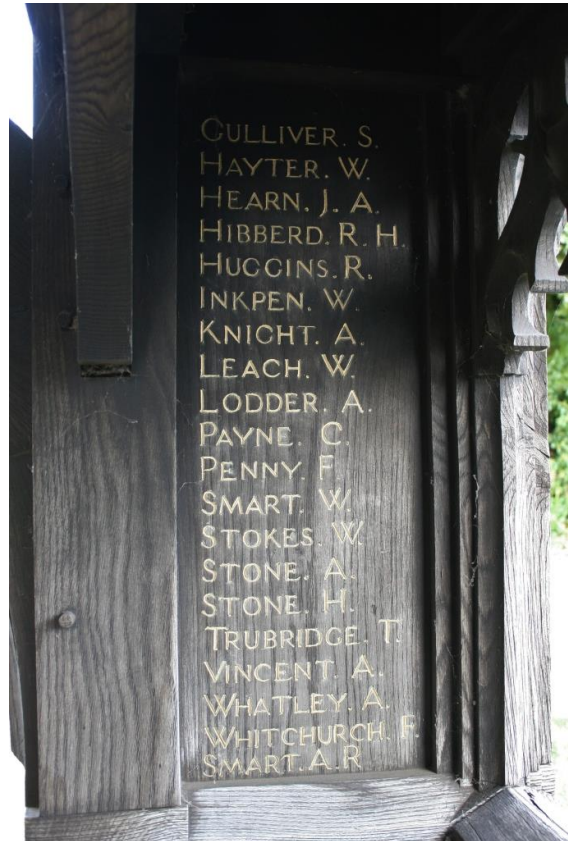 GULLIVER. S.
HAYTER. W.
HEARN. J. A.
HIBBERD. R. H.
HUGGINS. R.
INKPEN. W.
KNIGHT. A.
LEACH. W.
LODDER. A.
PAYNE. C.
PENNY. F
SMART. W.
STOKES. W.
STONE. A.
STONE. H.
TRUBRIDGE. T.
VINCENT. A.
WHATLEY. A.
WHITCHURCH. F.
SMART. A. R